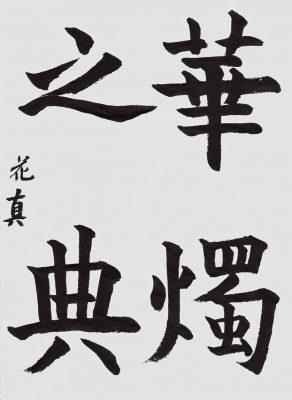 華燭
之典
花真